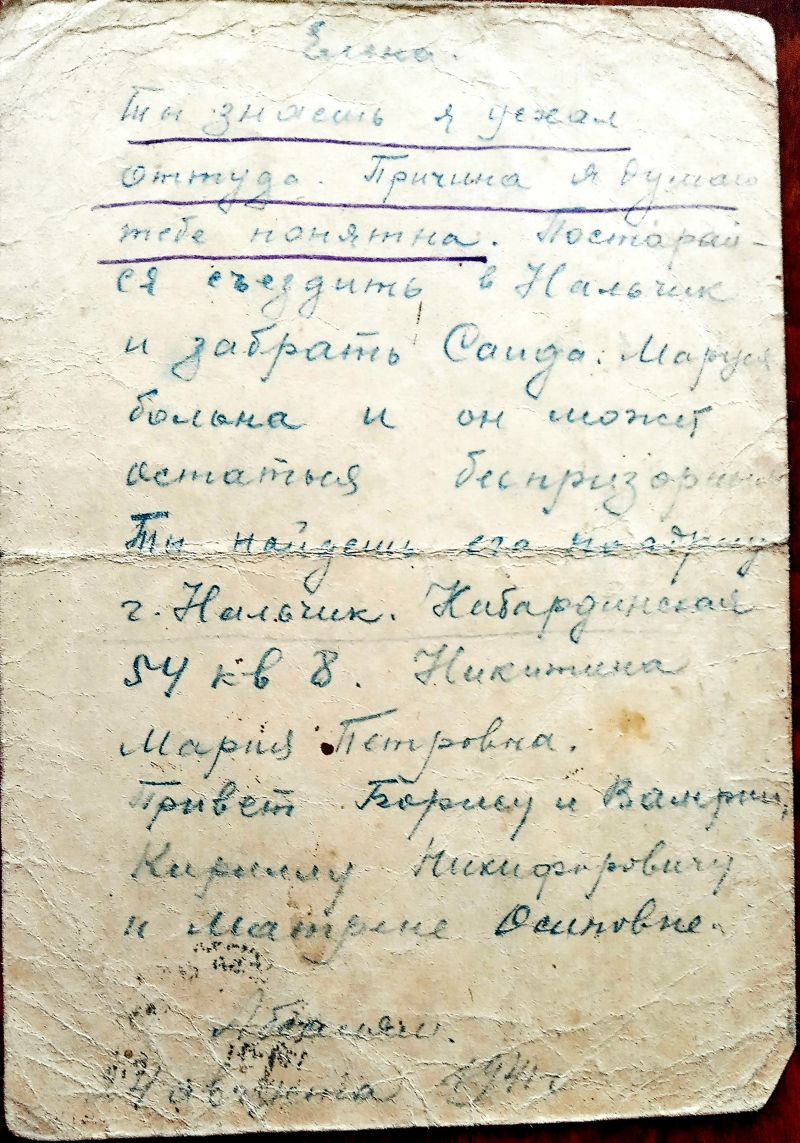 Елена.
Ты знаешь я уехал
оттуда. Причина я думаю
тебе понятна. Постарай-
ся съездить в Нальчик
и забрать Саида. Маруся
больна и он может
остаться беспризорным
Ты найдешь его по адресу
г. Нальчик. Кабардинская
54 кв 8. Никитина
Мария Петровна.
Привет Борису и Валерии,
Кириллу Никифоровичу
и Матрене Осиповне.
августа 1941 г